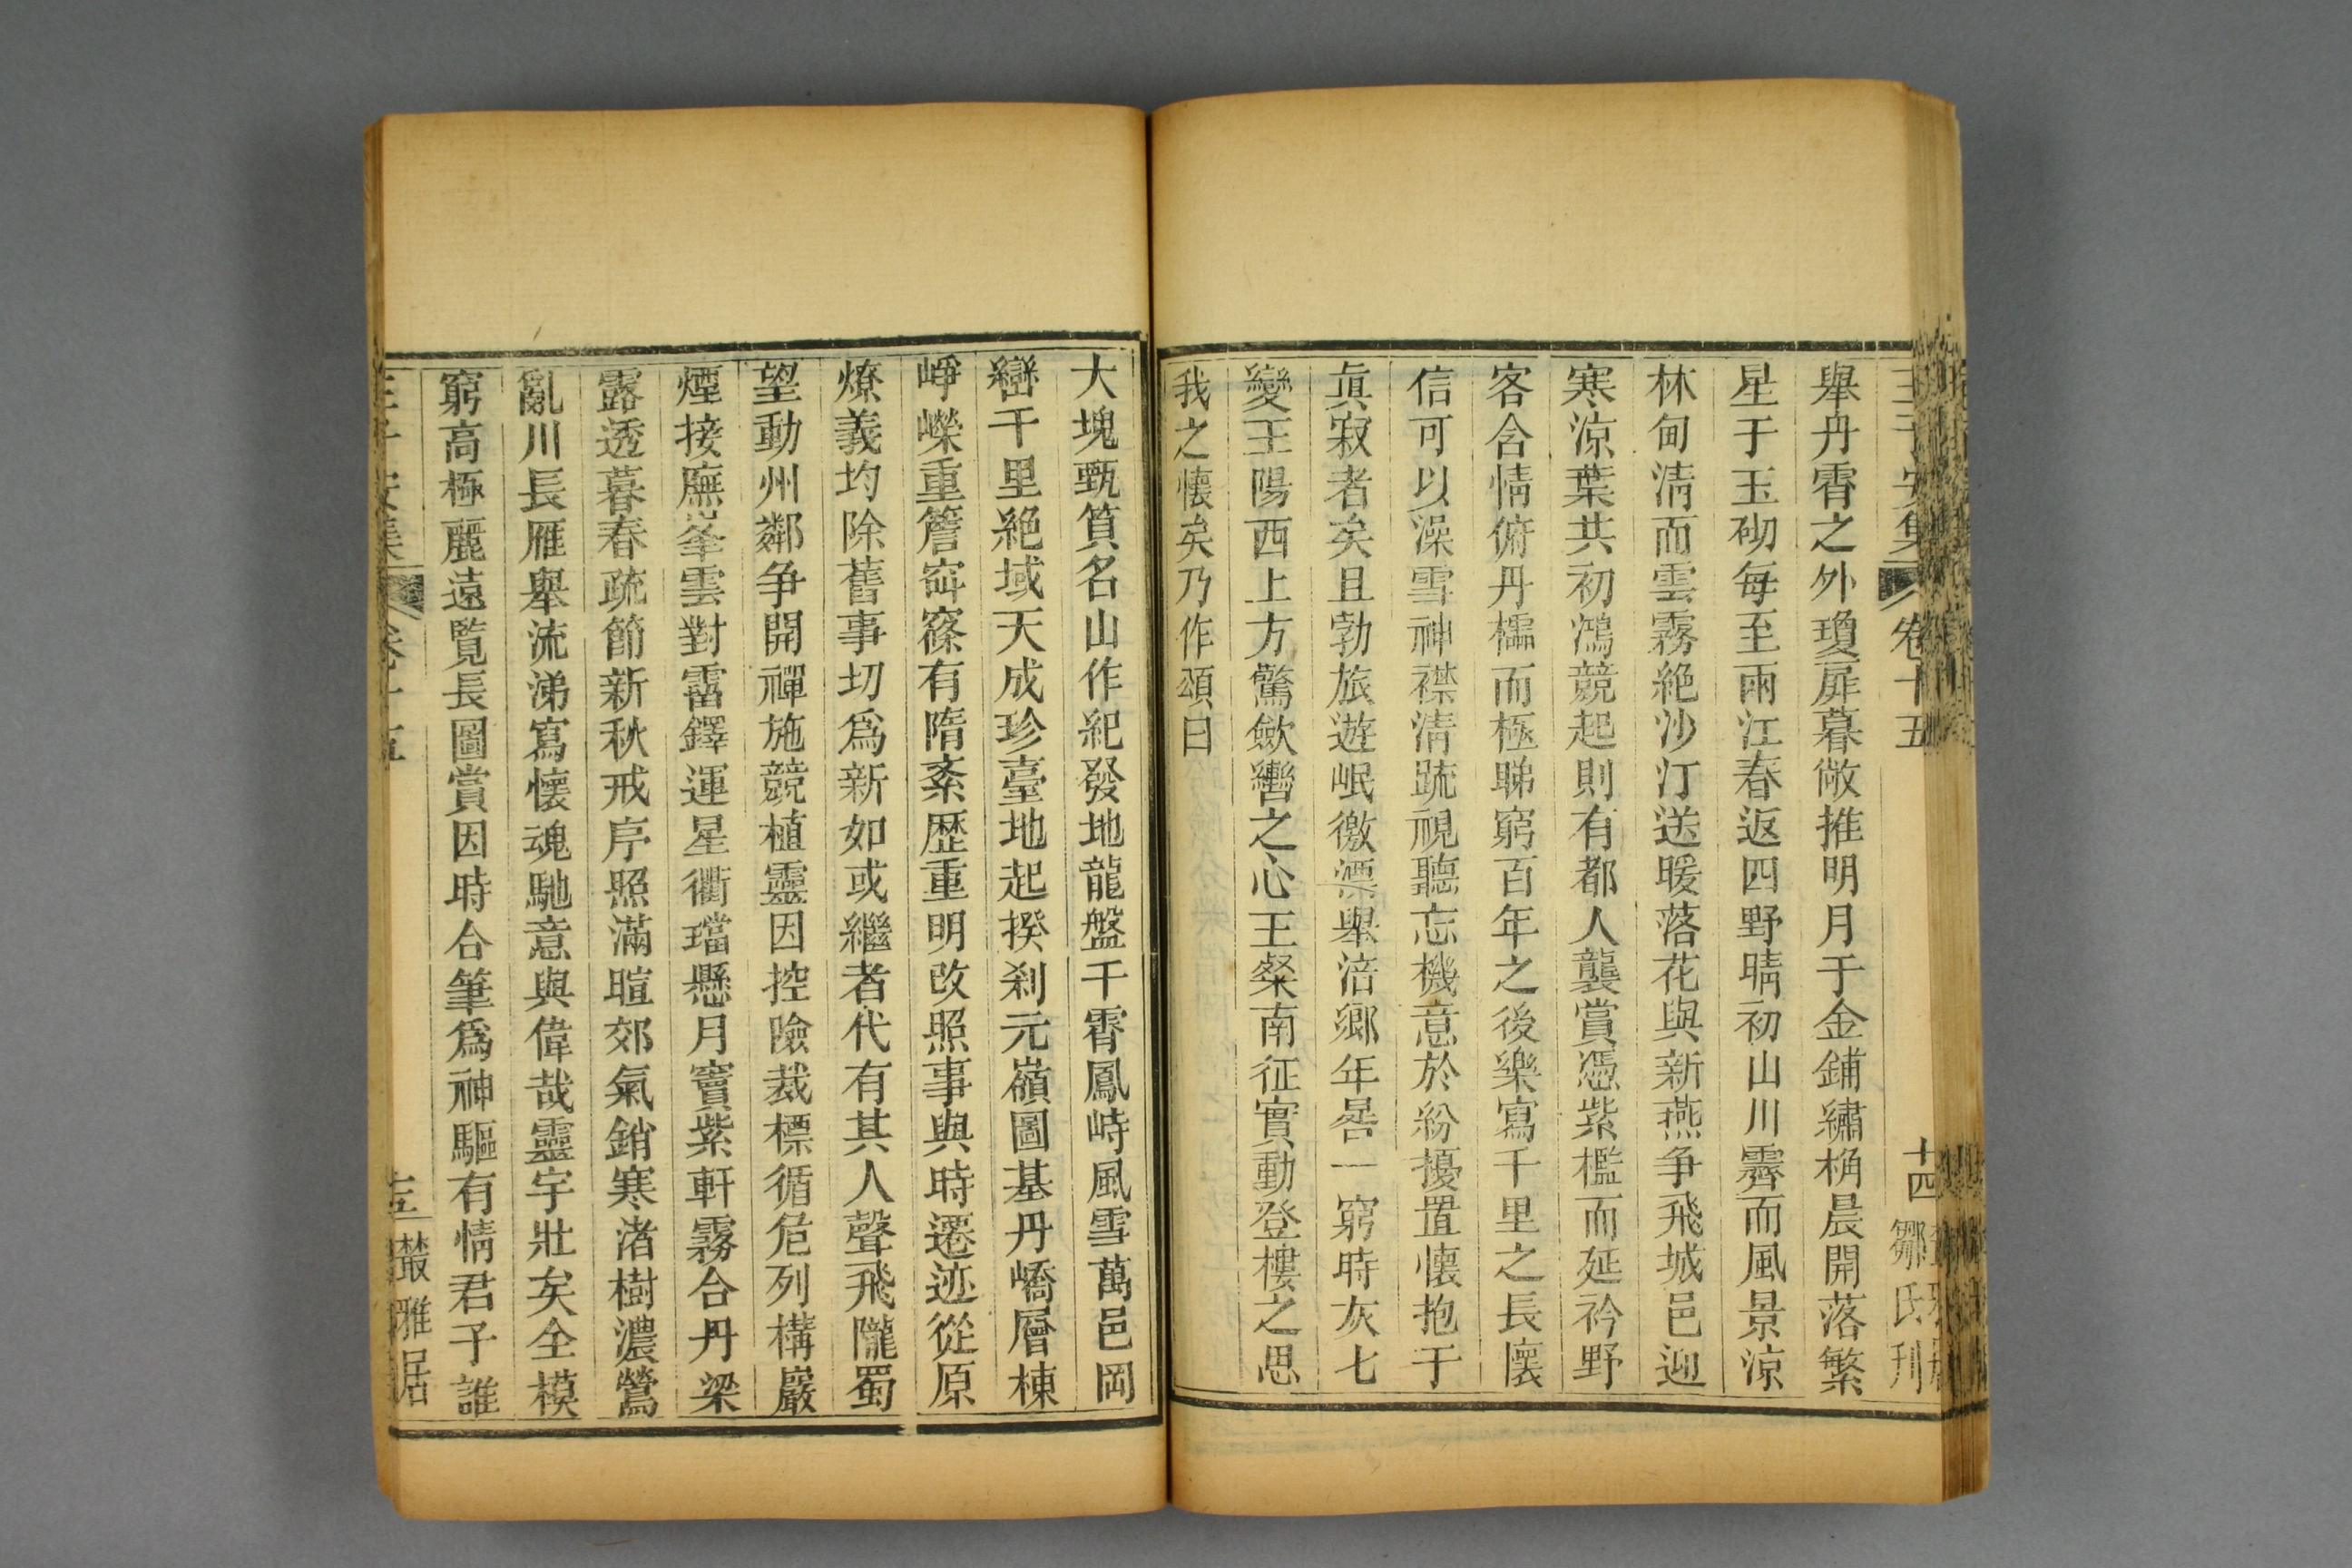 王子安集 卷十五 十四 鄒氏刋
舉丹霄之外瓊扉暮敞推明月于金鋪繡桷晨開落繁
星于玉砌每至兩江春返四野晴初山川霽而風景涼
林甸清而雲霧絶沙汀送暖落花與新燕争飛城邑迎
寒涼葉共初鴻競起則有都人襲賞憑紫檻而延衿野
客含情俯丹櫺而極睇窮百年之後樂寫千里之長懷
信可以澡雪神襟清疏視聽忘機意於紛擾置懷抱于
眞寂者矣且勃旅遊岷徼漂舉涪鄉年晷一窮時灰七
變王陽西上方驚歛轡之心王粲南征實動登樓之思
我之懷矣乃作頌曰
大塊甄箕名山作紀發地龍盤干霄鳳峙風雪萬邑岡
巒千里絶域天成珍臺地起揆刹元嶺圖基丹嶠層棟
崢嶸重簷窲篠有隋紊歴重明改照事與時遷迹從原
燎義均除舊事切爲新如或繼者代有其人聲飛隴蜀
望動州鄰争開禪施競植靈因控險裁標循危列構巖
煙接廡峯雲對霤鐸運星衢璫懸月竇紫軒霧合丹梁
露透暮春疏節新秋戒序照滿暄郊氣銷寒渚樹濃鶯
亂川長雁舉流涕寫懷魂馳意與偉哉靈宇壯矣全模
窮高極麗遠覧長圖賞因時合筆爲神驅有情君子誰
王子安集 卷十五 十五 叢雅居